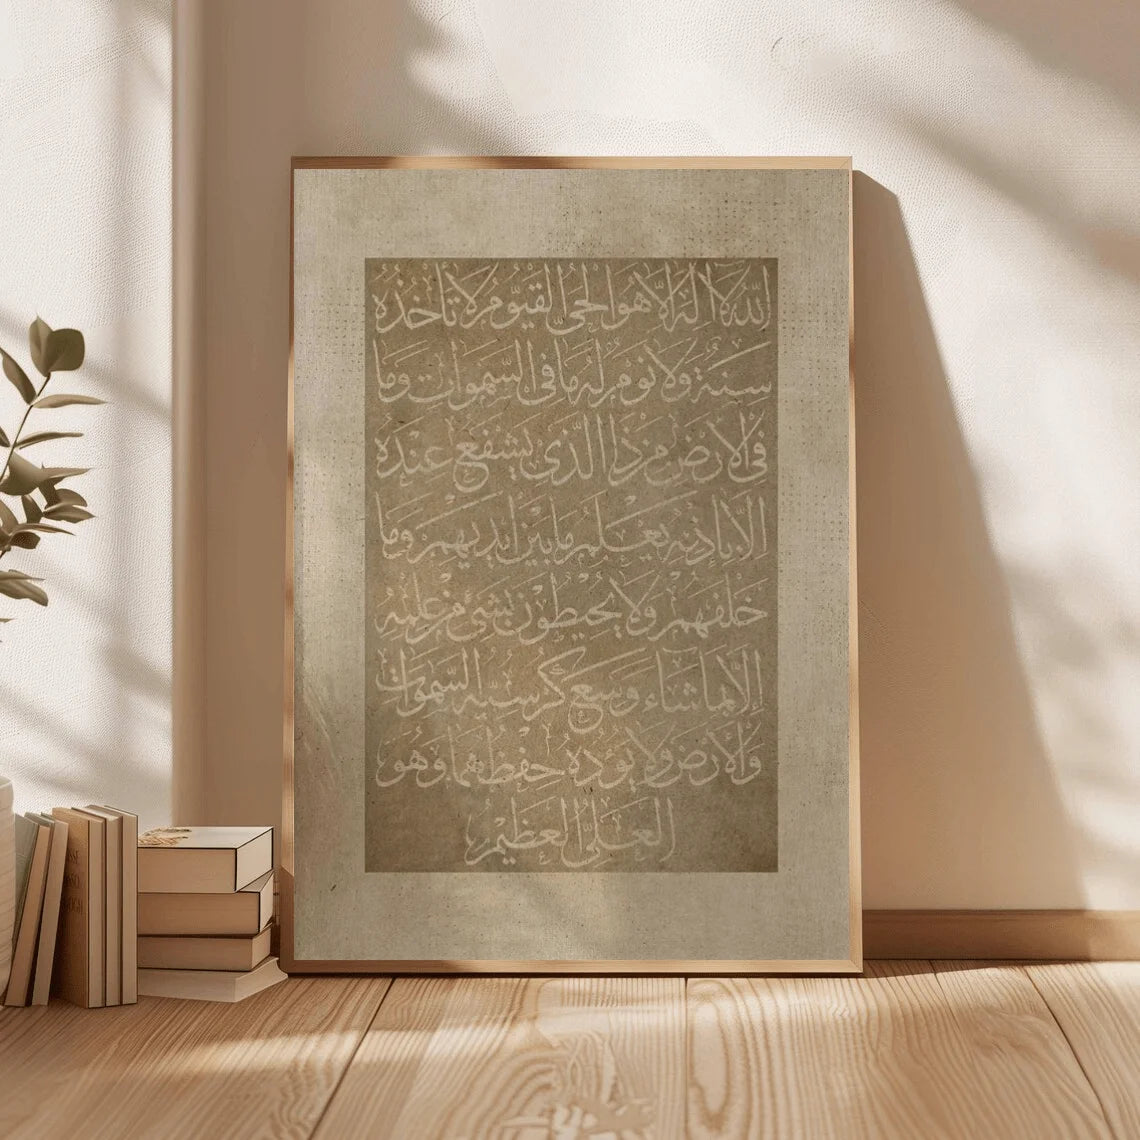 الله لا اله الا هو الحي القيوم لا تأخذه
سنة ولا نوم له ما في السموات وما
في الارض من ذا الذي يشفع عنده
الا باذنه يعلم ما بين ايديهم وما
خلفهم ولا يحيطون بشيء من علمه
الا بما شاء وسع كرسيه السموات
والارض ولا يوده حفظهما وهو
العلي العظيم